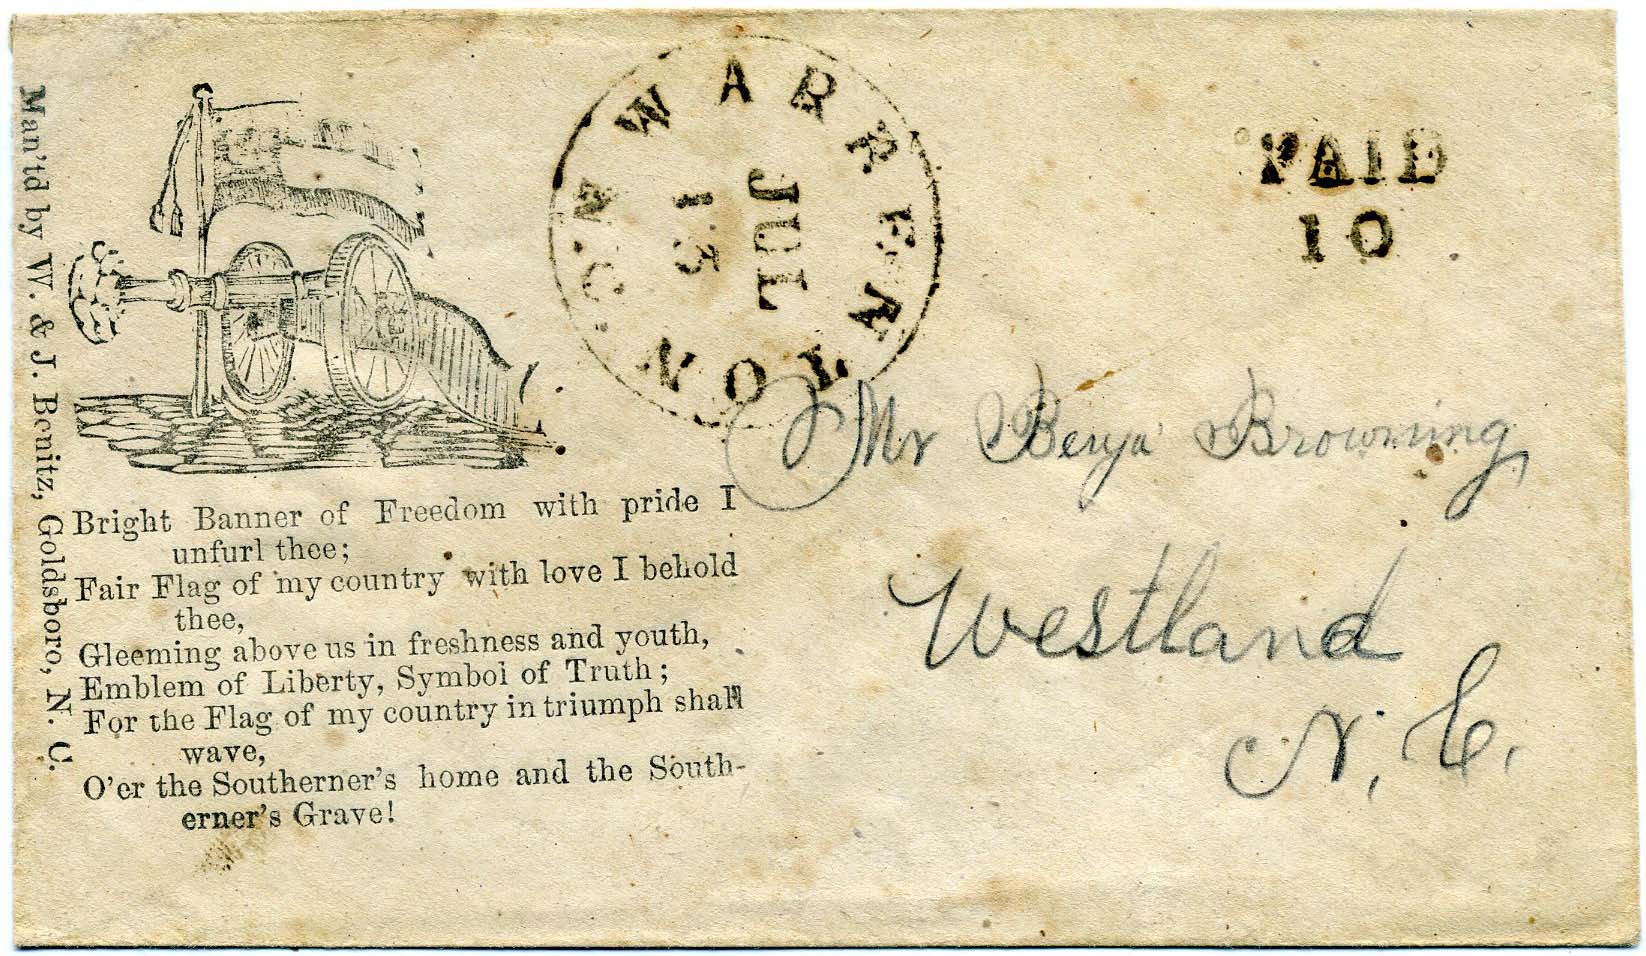 Man'td by W. & J. Benitz, Goldsboro, N. C.
WARRENTON
N. C.
JUL
15
PAID
10
Mr Benja Browning
Westland
N. C.
Bright Banner of Freedom with pride I
unfurl thee;
Fair Flag of my country with love I behold
thee,
Gleeming above us in freshness and youth,
Emblem of Liberty, Symbol of Truth;
For the Flag of my country in triumph shall
wave,
O'er the Southerner's home and the South-
erner's Grave!